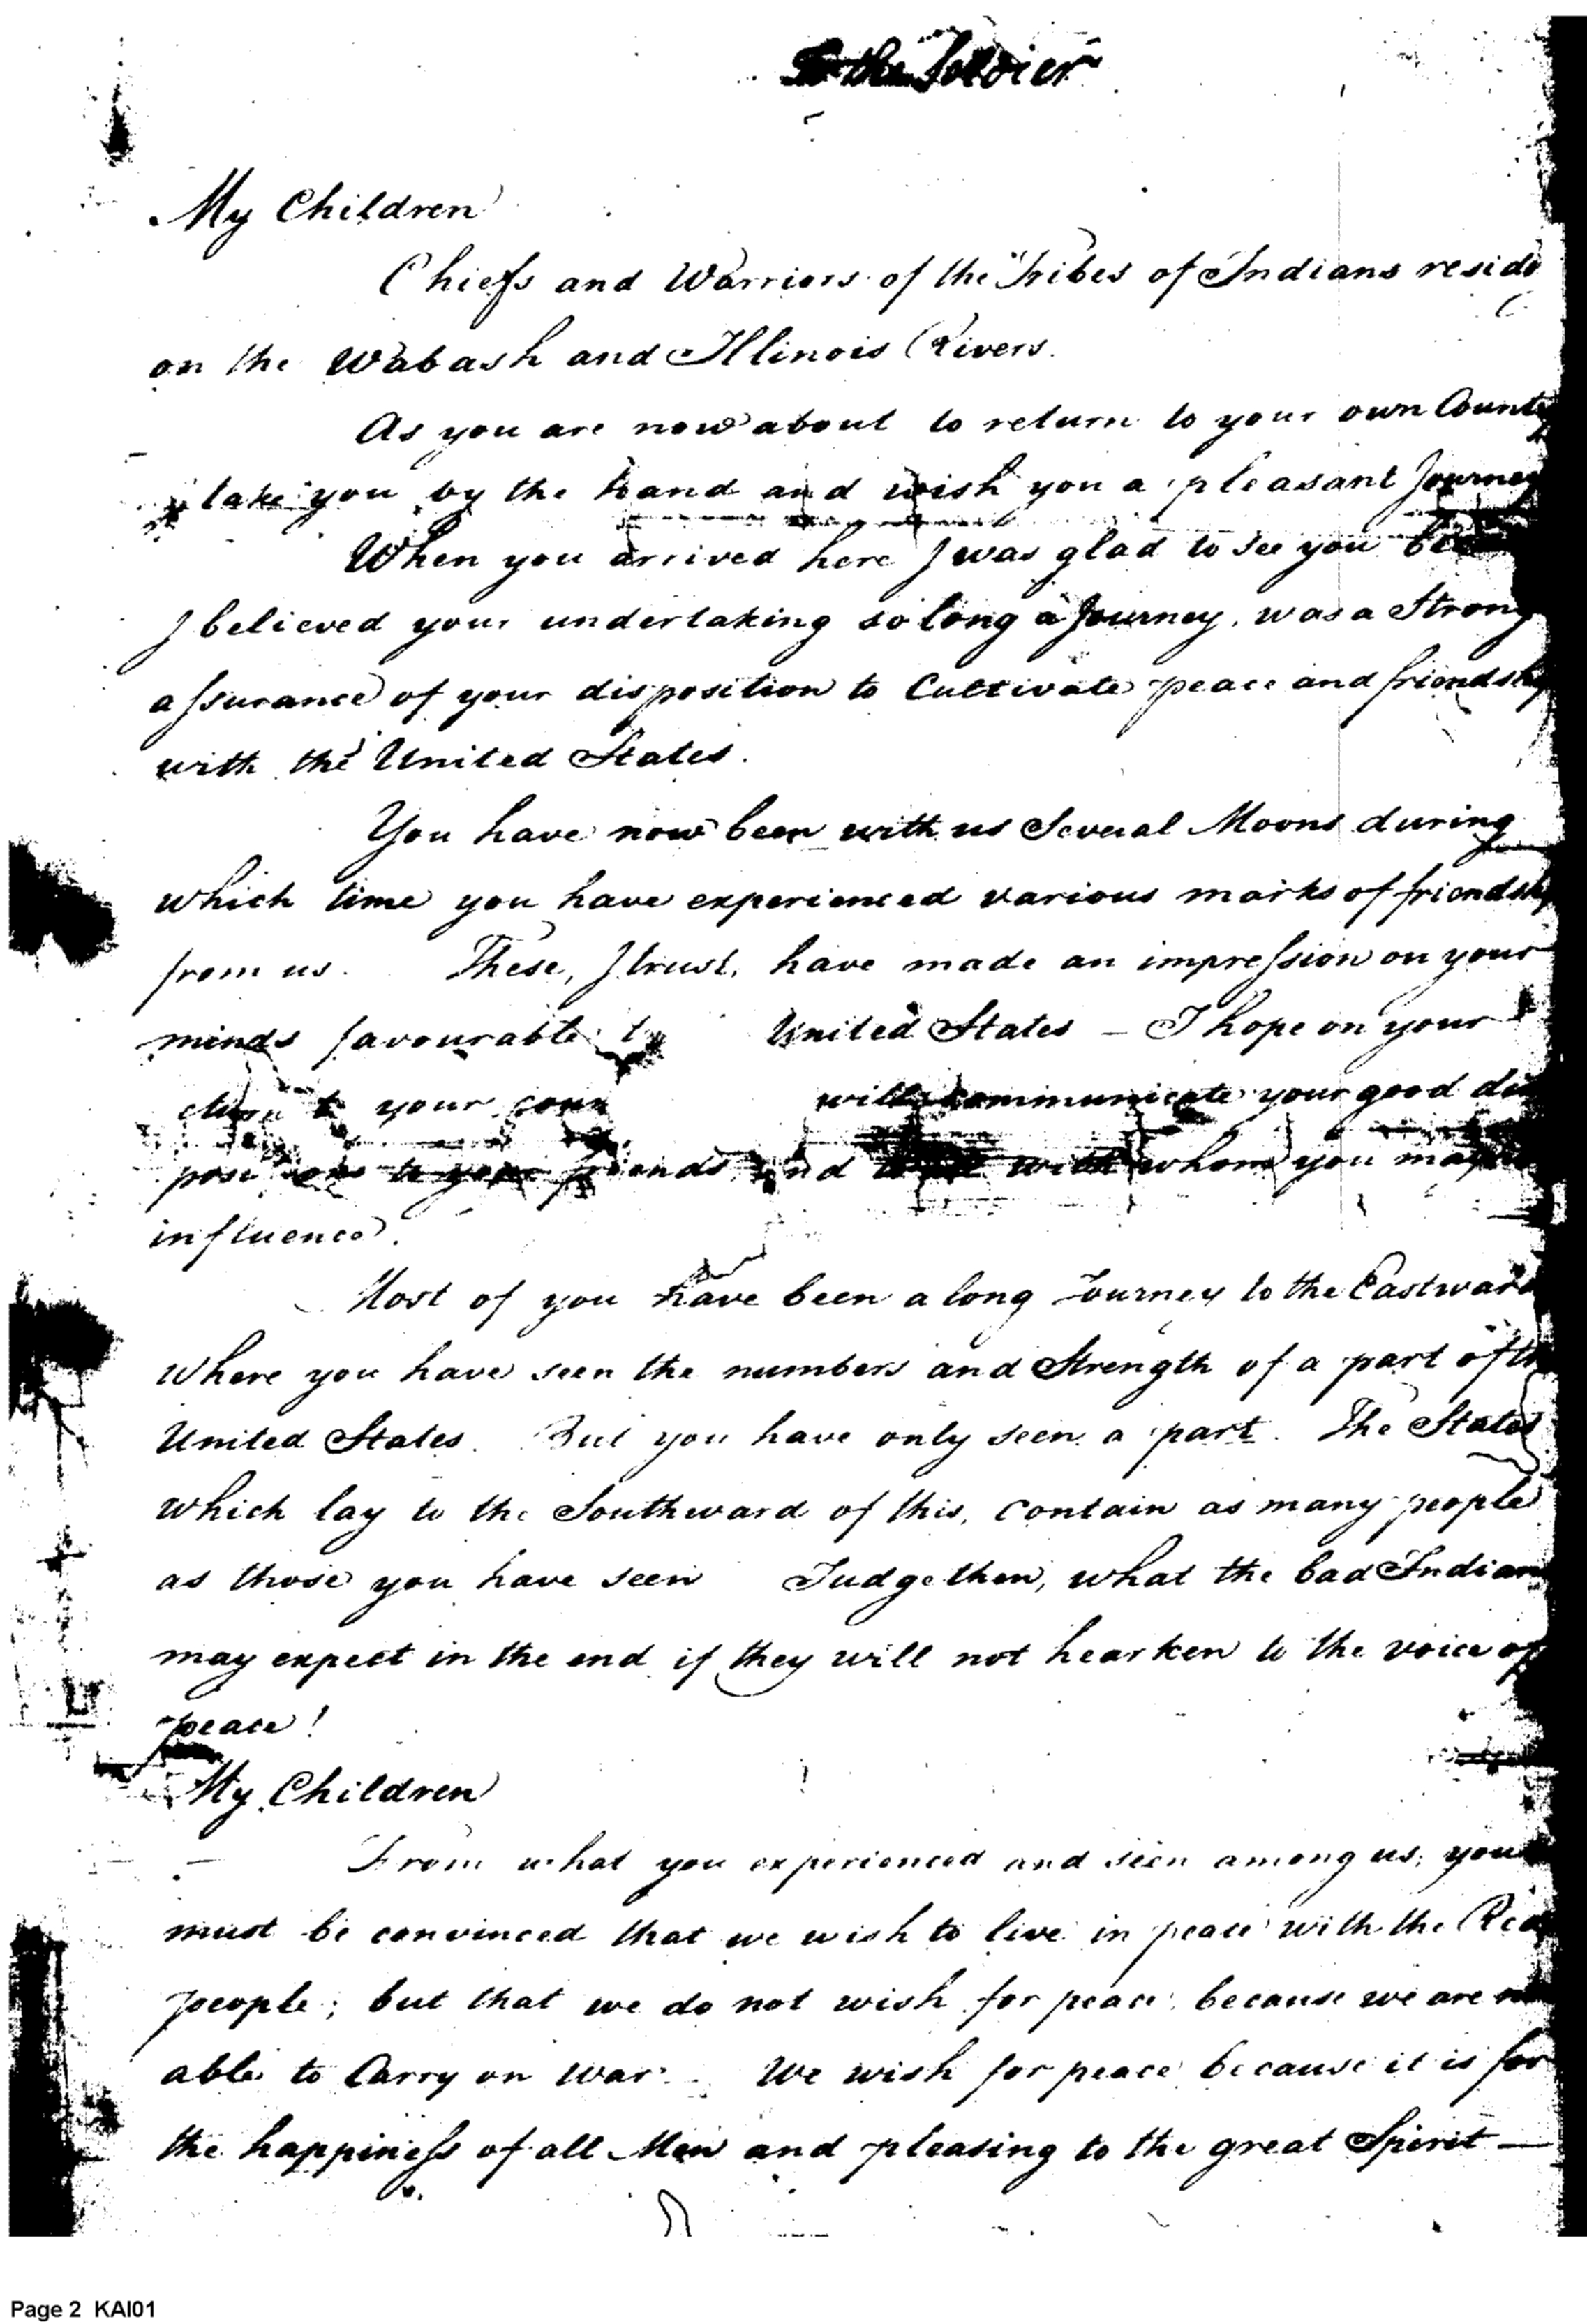 To the Soldier
My Children
Chiefs and Warriors of the Tribes of Indians reside
on the Wabash and Illinois Rivers.
As you are now about to return to your own Count
take you by the hand and wish you a pleasant Journey
When you arrived here I was glad to see you
I believed your undertaking so long a Journey, was a Strong
assurance of your disposition to Cultivate peace and friendship
with the United States.
You have now been with us Several Moons during
which time you have experienced various marks of friendship
from us. These, I trust, have made an impression on your
minds favourable t United States — I hope on your
to your coun will communicate your good dis
to your friends and with whom you may
influence.
Most of you have been a long Journey to the Eastward
where you have seen the numbers and Strength of a part of the
United States. But you have only seen a part. The States
which lay to the Southward of this, contain as many people
as those you have seen Judge then, what the bad Indians
may expect in the end if they will not hearken to the voice of
peace!
My Children
From what you experienced and seen among us, you
must be convinced that we wish to live in peace with the Red
people; but that we do not wish for peace because we are
able to Carry on war. We wish for peace because it is for
the happiness of all Men and pleasing to the great Spirit —
Page 2 KAI01